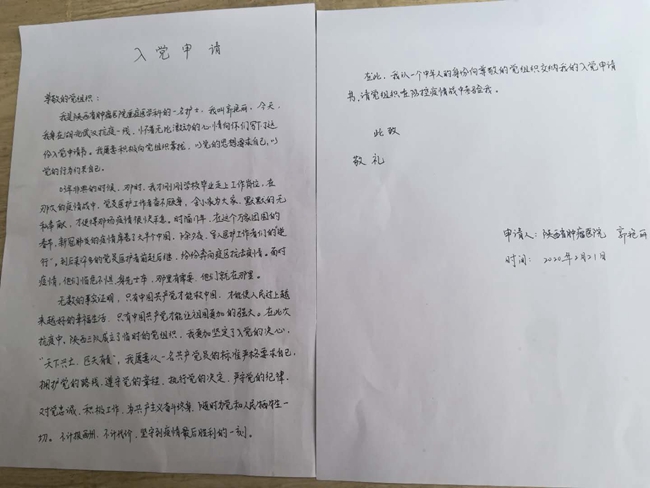 入党申请
尊敬的党组织：
我是陕西省肿瘤医院重症医学科的一名护士，我叫郭艳丽，今天，
我身在湖北武汉抗疫一线，怀着无比激动的心情向你们写下这
份入党申请书。我愿意积极向党组织靠拢，以党的思想要求自己，以
党的行为约束自己。
03年非典的时候，那时，我才刚刚学校毕业走上工作岗位，在
那次的疫情战中，党员医护工作者奋不顾身，舍小家为大家，默默的无
私奉献，才使得那场疫情很快平息。时隔17年，在这个万家团圆的
春节，新冠肺炎的疫情席卷了大半个中国，除夕夜，军人医护工作者们的逆
行"，到后来许多的党员医护者前赴后继，纷纷奔向疫区抗击疫情。面对
疫情，他们临危不惧，身先士卒，哪里有需要，他们就在哪里。
无数的事实证明，只有中国共产党才能救中国，才能使人民过上越
来越好的幸福生活，只有中国共产党才能让祖国更加的强大。在此次
抗疫中，陕西三队成立了临时的党组织，我更加坚定了入党的决心，
"天下兴亡，匹夫有责"，我愿意以一名共产党员的标准严格要求自己，
拥护党的路线，遵守党的章程，执行党的决定，严守党的纪律，
对党忠诚，积极工作，为共产主义奋斗终身，随时为党和人民牺牲一
切。不计报酬，不计代价，坚守到疫情最后胜利的一刻。
在此，我以一个中年人的身份向尊敬的党组织交纳我的入党申请
书，请党组织在防控疫情战中考验我。
此致
敬礼
申请人：陕西省肿瘤医院 郭艳丽
时间：2020年2月21日